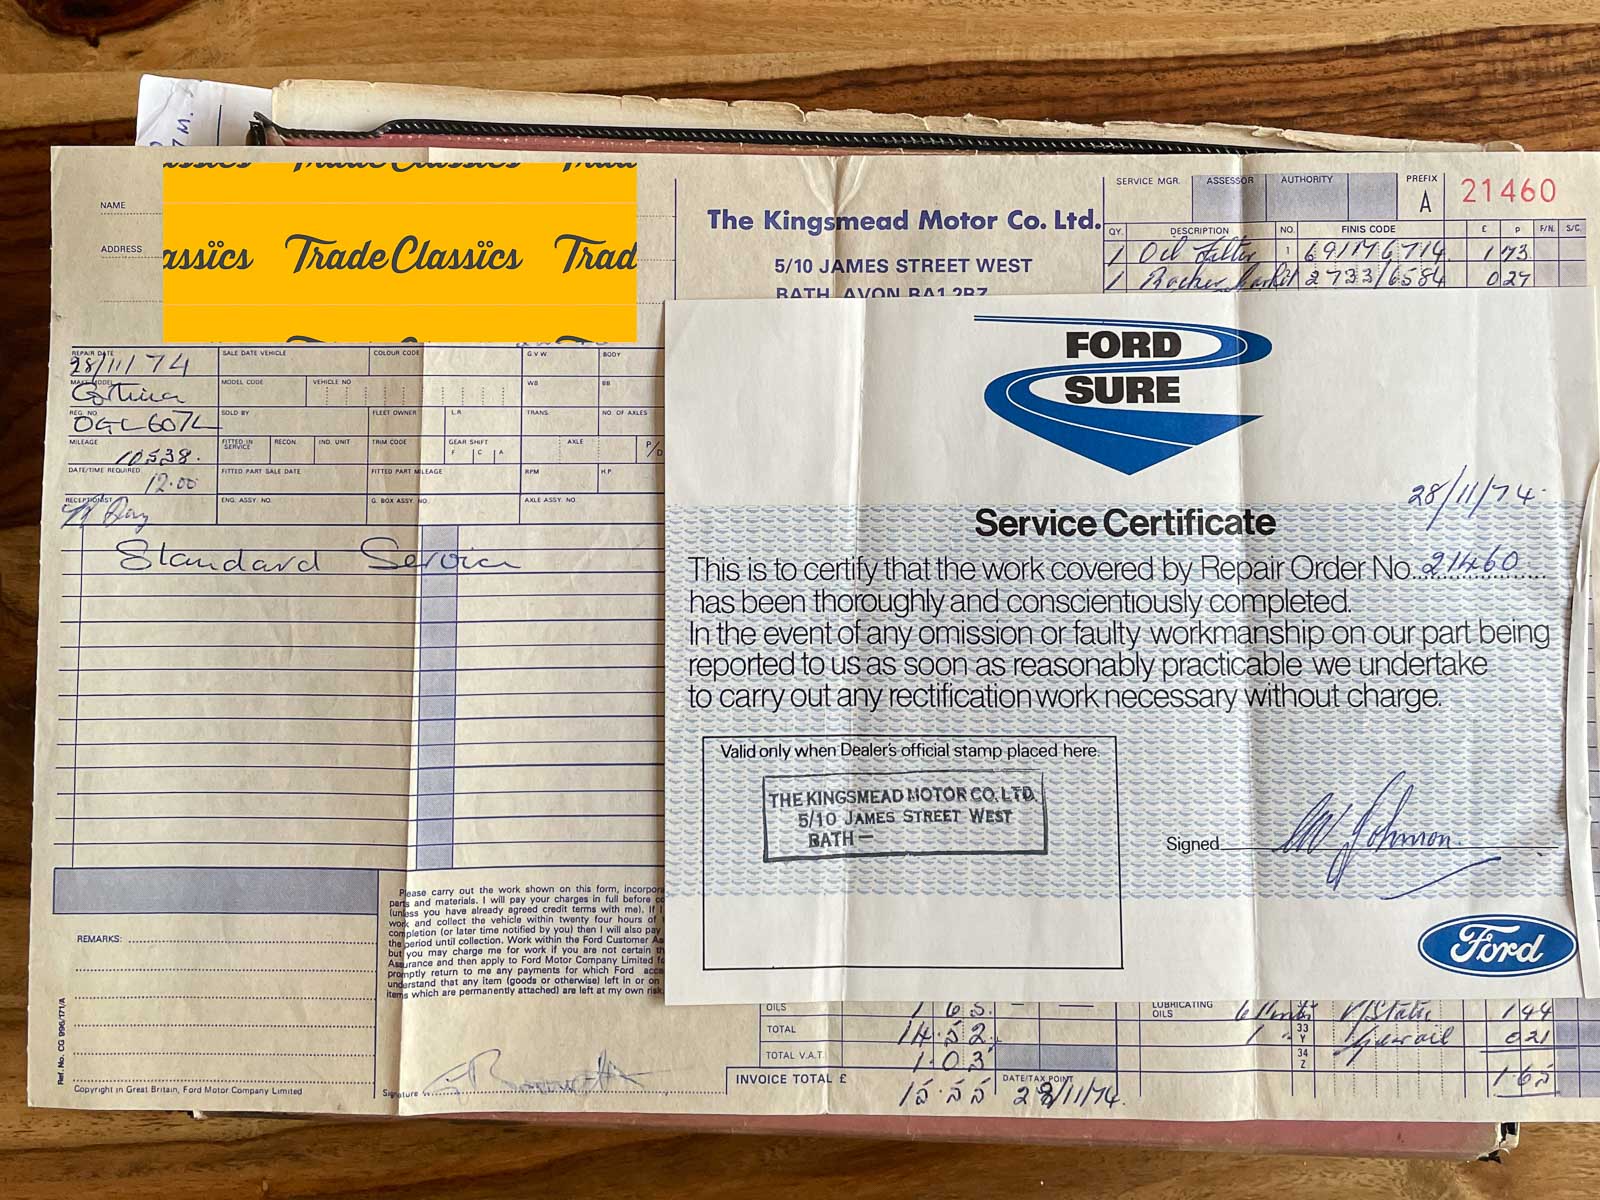 NAME
ADDRESS
assïcs TradeClassïcs Trad
The Kingsmead Motor Co. Ltd.
5/10 JAMES STREET WEST
BATH, AVON BA1 2BZ
SERVICE MGR. ASSESSOR AUTHORITY PREFIX
A 21460
QY. DESCRIPTION NO. FINIS CODE £ P F/N. S/C.
1 Oil Filter 1 69117 6714 1 73
1 Rocker Gasket 2733/6584 0 27
REPAIR DATE SALE DATE VEHICLE COLOUR CODE G.V.W. BODY
28/11/74
MAKE/MODEL MODEL CODE VEHICLE NO WB BB
Cortina
REG. NO SOLD BY FLEET OWNER L.R. TRANS. NO. OF AXLES
OGL 607L
MILEAGE FITTED IN SERVICE RECON. IND. UNIT TRIM CODE GEAR SHIFT AXLE P/D
F C A
10538.
DATE/TIME REQUIRED FITTED PART SALE DATE FITTED PART MILEAGE RPM H.P.
12.00
RECEPTIONIST ENG. ASSY. NO. G. BOX ASSY. NO. AXLE ASSY. NO.
Standard Service
REMARKS:
Please carry out the work shown on this form, incorpora
parts and materials. I will pay your charges in full before co
(unless you have already agreed credit terms with me). If I
work and collect the vehicle within twenty four hours of
completion (or later time notified by you) then I will also pay
the period until collection. Work within the Ford Customer As
but you may charge me for work if you are not certain th
Assurance and then apply to Ford Motor Company Limited fo
promptly return to me any payments for which Ford acce
understand that any item (goods or otherwise) left in or on
items which are permanently attached) are left at my own risk
Ref. No. CG 996/171/A
Copyright in Great Britain, Ford Motor Company Limited
Signature
FORD
SURE
28/11/74.
Service Certificate
This is to certify that the work covered by Repair Order No. 21460
has been thoroughly and conscientiously completed.
In the event of any omission or faulty workmanship on our part being
reported to us as soon as reasonably practicable we undertake
to carry out any rectification work necessary without charge.
Valid only when Dealer's official stamp placed here.
THE KINGSMEAD MOTOR CO. LTD.
5/10 JAMES STREET WEST
BATH —
Signed Johnson
Ford
OILS 1 65. LUBRICATING OILS 1 44
TOTAL 14.52. 1 33 Y Gear oil 0 21
TOTAL V.A.T. 1.03 34 Z
INVOICE TOTAL £ 15.55 DATE/TAX POINT 28/11/74. 1.65